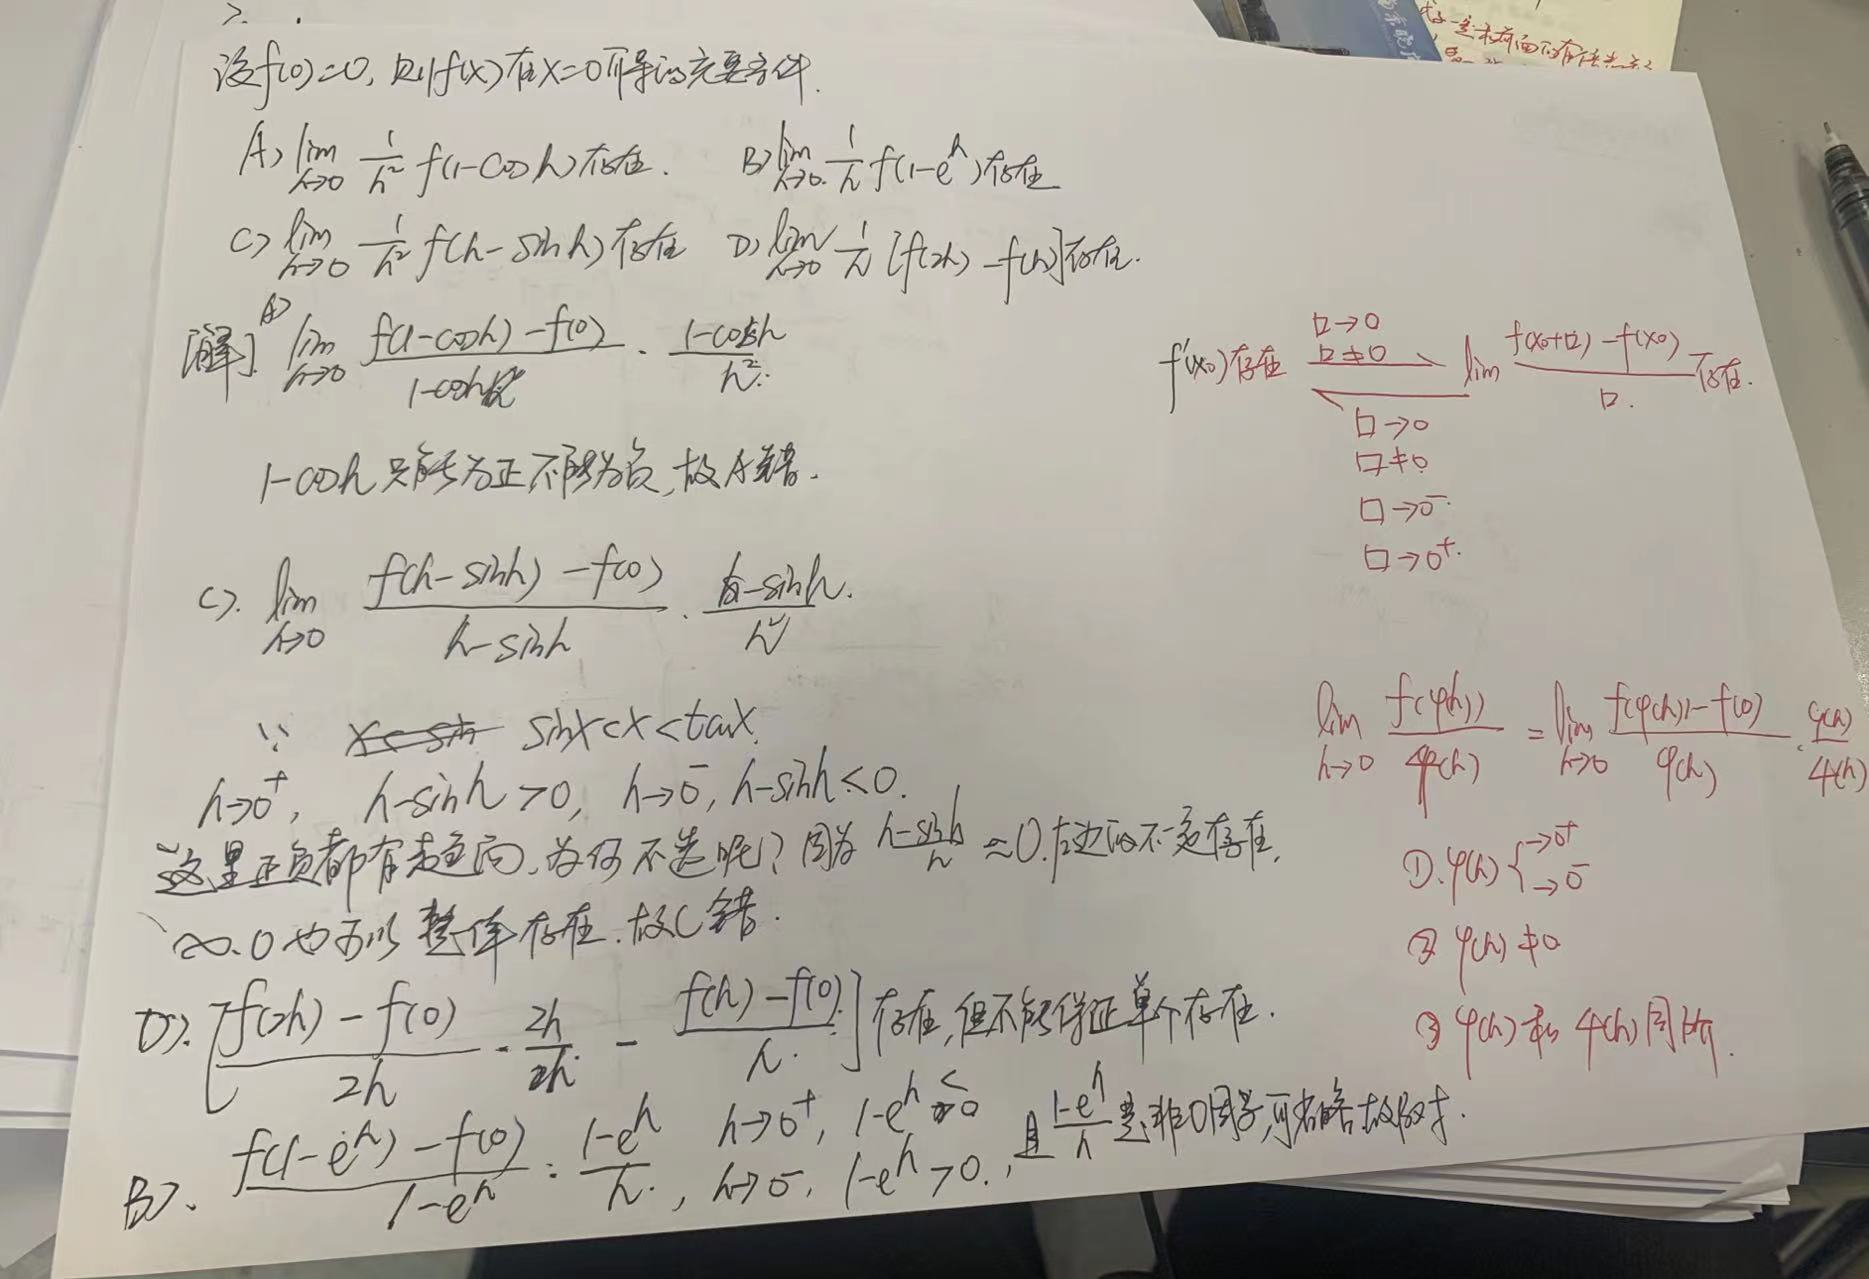 设f(0)=0,则f(x)在x=0可导的充要条件.
A) lim h→0 1/h² f(1-cosh)存在. B) lim h→0 1/h f(1-e^h)存在
C) lim h→0 1/h² f(h-sinh)存在 D) lim h→0 1/h [f(2h)-f(h)]存在.
[解] A) lim h→0 f(1-cosh)-f(0) / 1-cosh · 1-cosh / h²
1-cosh只能为正不能为负,故A错.
C). lim h→0 f(h-sinh)-f(0) / h-sinh · h-sinh / h²
∵ sinx<x<tanx
h→0⁺, h-sinh>0, h→0⁻, h-sinh<0.
这里正负都有趋向,为何不选呢?因为 h-sinh / h ≈0.左边的不一定存在.
∞.0也可以整体存在.故C错.
D). [f(2h)-f(0) / 2h · 2h / h - f(h)-f(0) / h]存在,但不能保证单个存在.
B). f(1-e^h)-f(0) / 1-e^h · 1-e^h / h , h→0⁺, 1-e^h<0
h→0⁻, 1-e^h>0. ,且 1-e^h / h 是非0因子,可省略故B对.
f'(x₀)存在 □→0 □≠0 lim f(x₀+□)-f(x₀) / □ 存在.
□→0
□≠0
□→0⁻
□→0⁺
lim h→0 f(φ(h)) / ψ(h) = lim h→0 f(φ(h))-f(0) / φ(h) · φ(h) / ψ(h)
①.φ(h) { →0⁺ →0⁻
② φ(h)≠0
③ φ(h)和ψ(h)同阶.